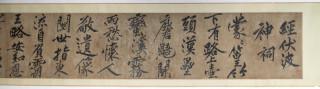 經伏波
神祠
蒙〻篁竹
下有路上壺
頭漢壘
麏鼯鬭
蠻溪霧
雨愁懷人
敬遺像
閱世指東
流自負霸
王略安知恩